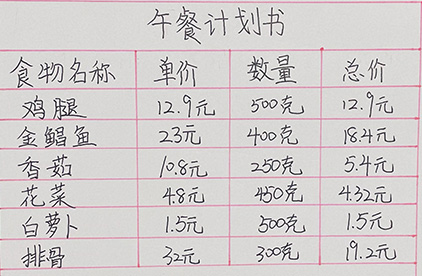 午餐计划书
食物名称 单价 数量 总价
鸡腿 12.9元 500克 12.9元
金鲳鱼 23元 400克 18.4元
香菇 10.8元 250克 5.4元
花菜 4.8元 450克 4.32元
白萝卜 1.5元 500克 1.5元
排骨 32元 300克 19.2元